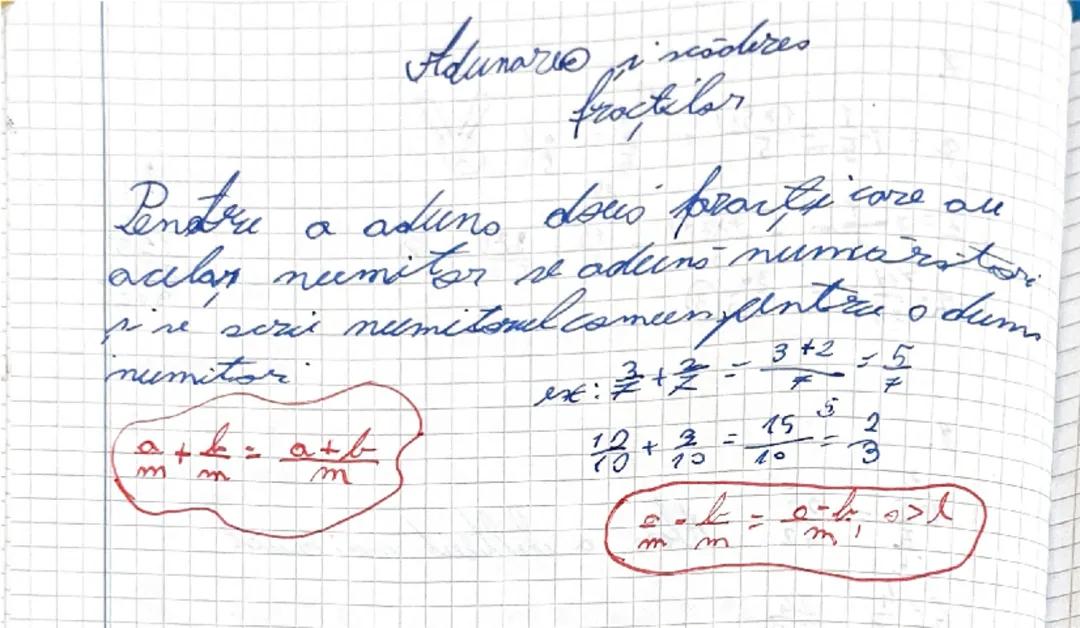 Adunarea și scăderea
fracțiilor
Pentru a aduna două fracții care au
același numitor se adună numărători
și se scrie numitorul comun, pentru
numitor.
ex: 3/7 + 2/7 = 3+2/7 = 5/7
a/m + b/m = a+b/m
12/10 + 3/10 = 15/10 =⁵ 2/3
a/m - b/m = a-b/m, a>b